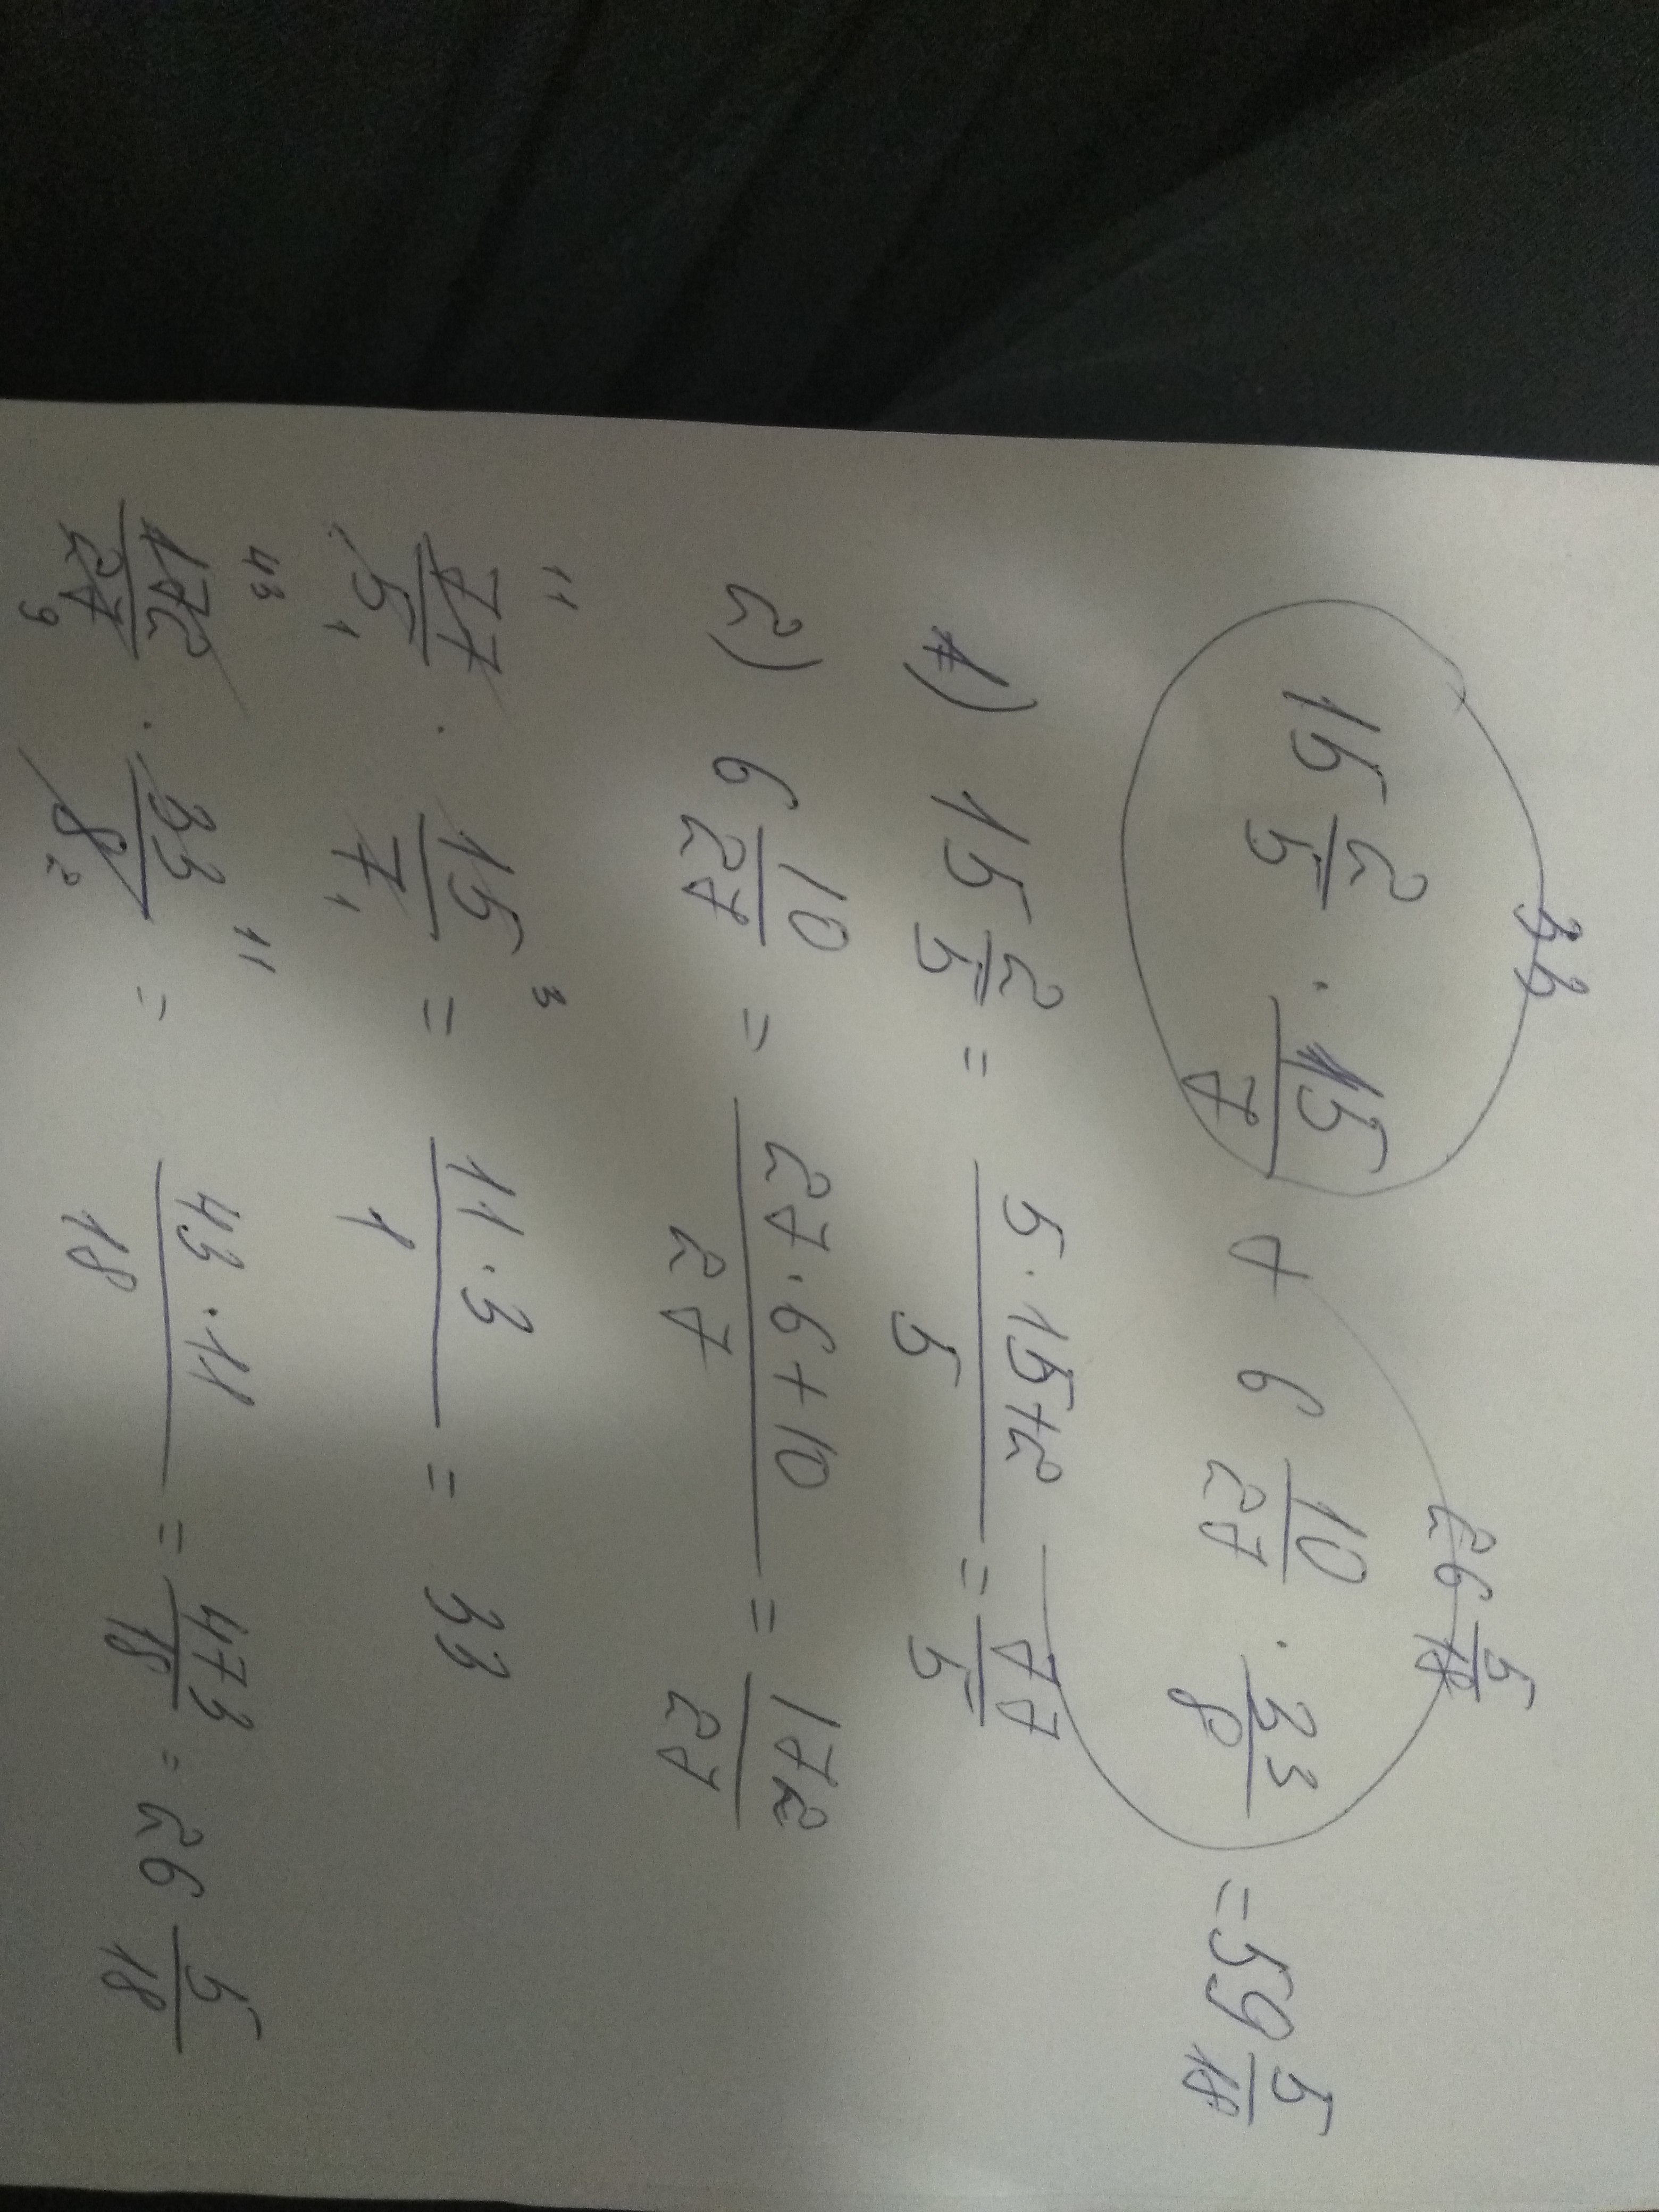 33 26 5/18
15 2/5 · 15/7 + 6 10/27 · 33/8 = 59 5/18
1) 15 2/5 = (5·15+2)/5 = 77/5
2) 6 10/27 = (27·6+10)/27 = 172/27
11 3
77/5 · 15/7 = (11·3)/1 = 33
1 1
43 11
172/27 · 33/8 = (43·11)/18 = 473/18 = 26 5/18
9 2